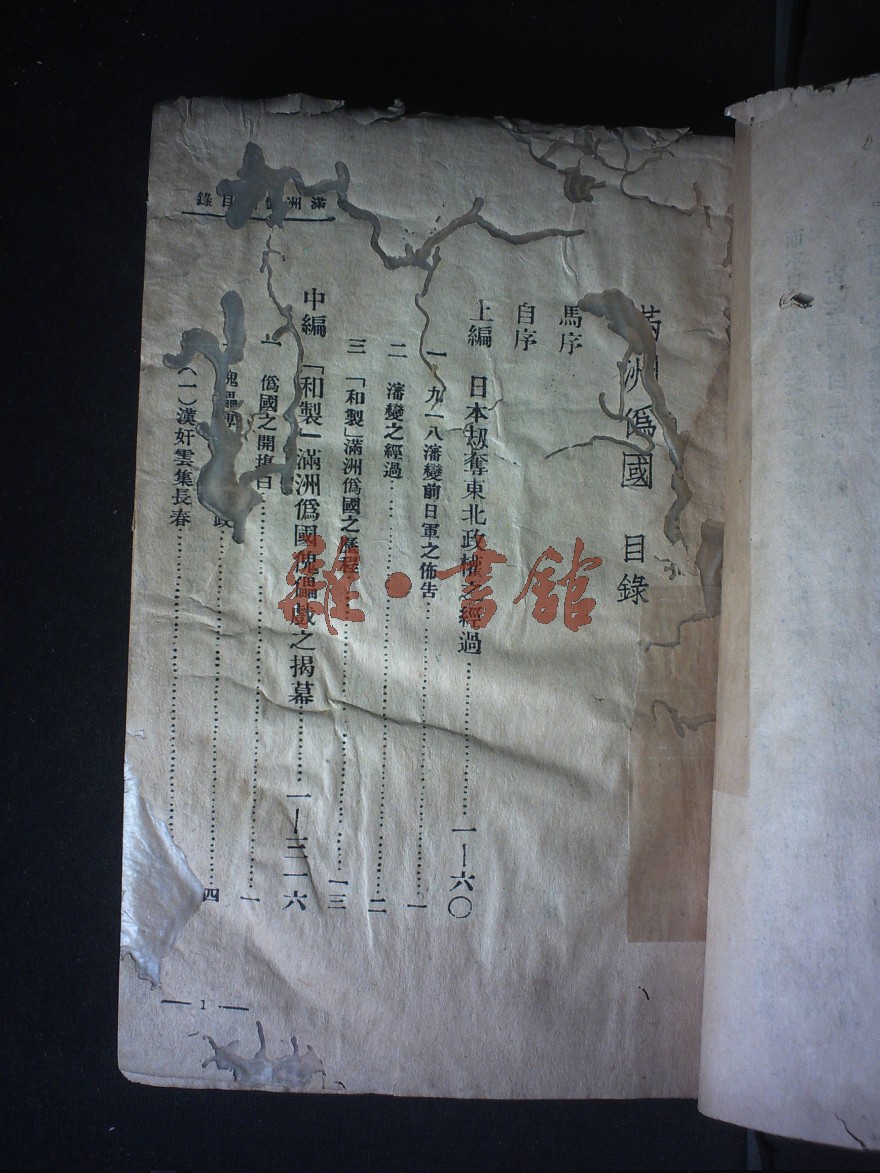 滿洲僞國 目錄
馬序
自序
上編 日本刼奪東北政權之經過……一—六〇
一 九一八瀋變前日軍之佈告……一
二 瀋變之經過……二
三 「和製」滿洲僞國之歷程……一三
中編 「和製」滿洲僞國傀儡戲之揭幕……一—三一六
一 僞國之開塲白……一
傀儡……四
(一)漢奸雲集長春……
滿洲 目錄
— 1 —
雜·書館